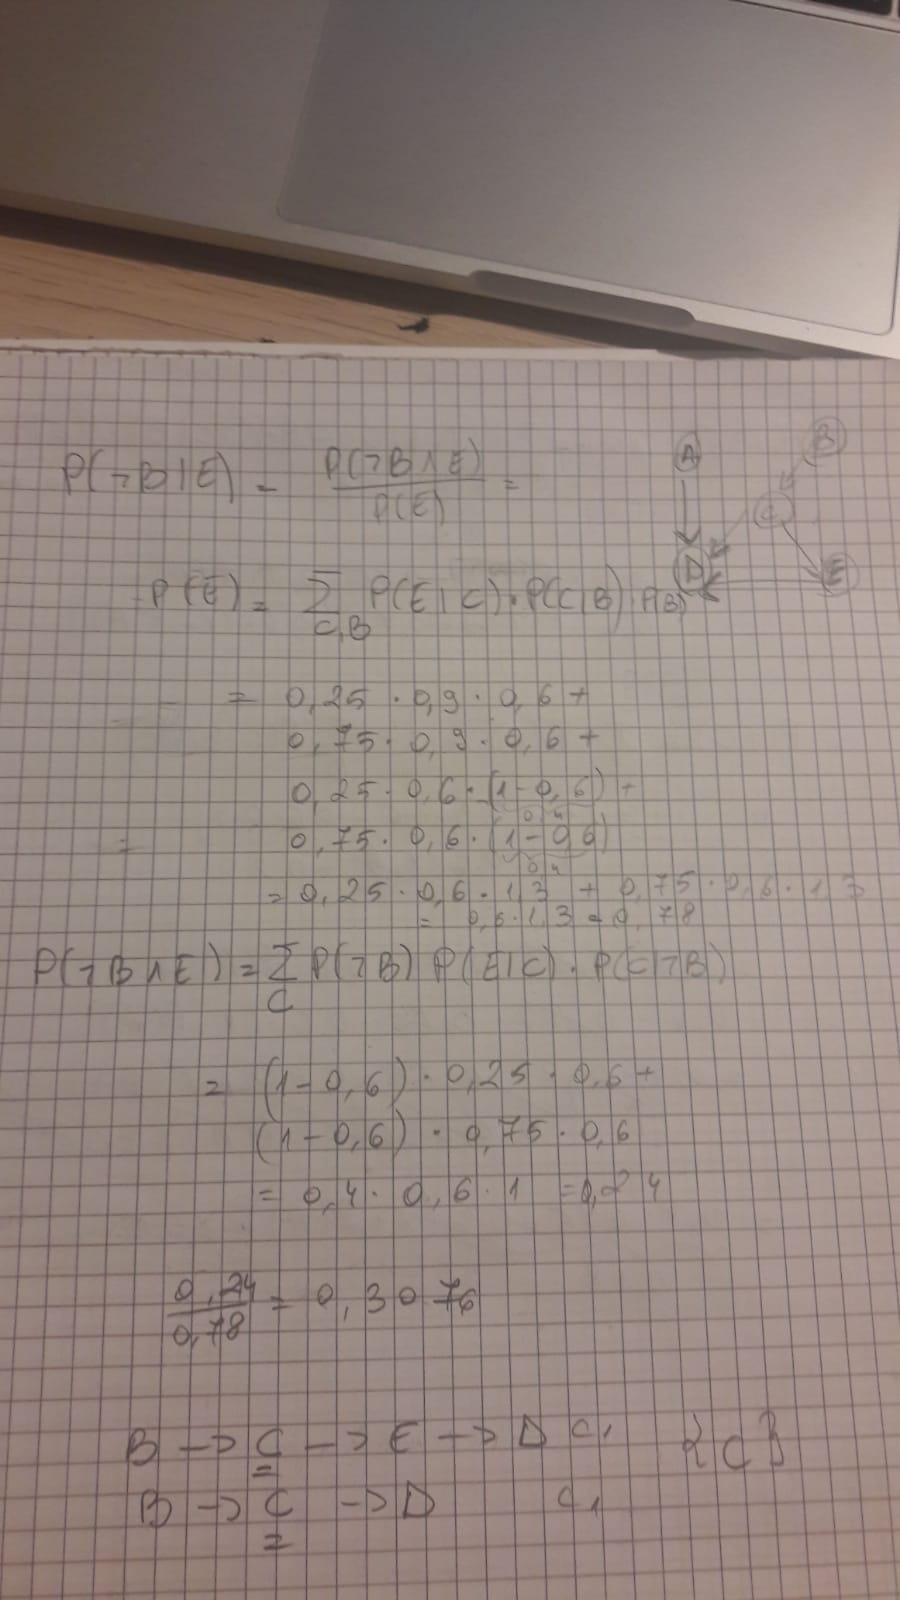 P(¬B|E) = P(¬B∧E) / P(E) =
A
B
C
D
E
P(E) = Σ P(E|C)·P(C|B)·P(B)
C,B
= 0,25 · 0,9 · 0,6 +
0,75 · 0,9 · 0,6 +
0,25 · 0,6 · (1-0,6) +
0,4
= 0,75 · 0,6 · (1-0,6)
0,4
= 0,25 · 0,6 · 1,3 + 0,75 · 0,6 · 1,3
= 0,6 · 1,3 = 0,78
P(¬B∧E) = Σ P(¬B) P(E|C) · P(C|¬B)
C
= (1-0,6) · 0,25 · 0,6 +
(1-0,6) · 0,75 · 0,6
= 0,4 · 0,6 · 1 = 0,24
0,24 / 0,78 = 0,3076
B -> C -> E -> D C1 {C}
B -> C -> D C1